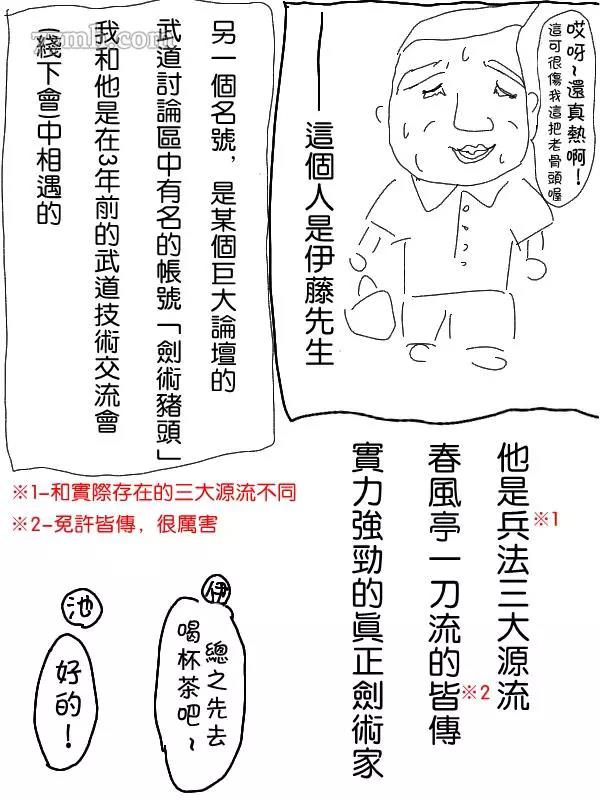 哎呀~還真熱啊!
這可很傷我這把老骨頭喔
——這個人是伊藤先生
另一個名號，是某個巨大論壇的
武道討論區中有名的帳號「劍術豬頭」
我和他是在3年前的武道技術交流會
(綫下會)中相遇的
他是兵法三大源流※1
春風亭一刀流的皆傳※2
實力強勁的真正劍術家
※1-和實際存在的三大源流不同
※2-免許皆傳，很厲害
伊
總之先去
喝杯茶吧~
池
好的!